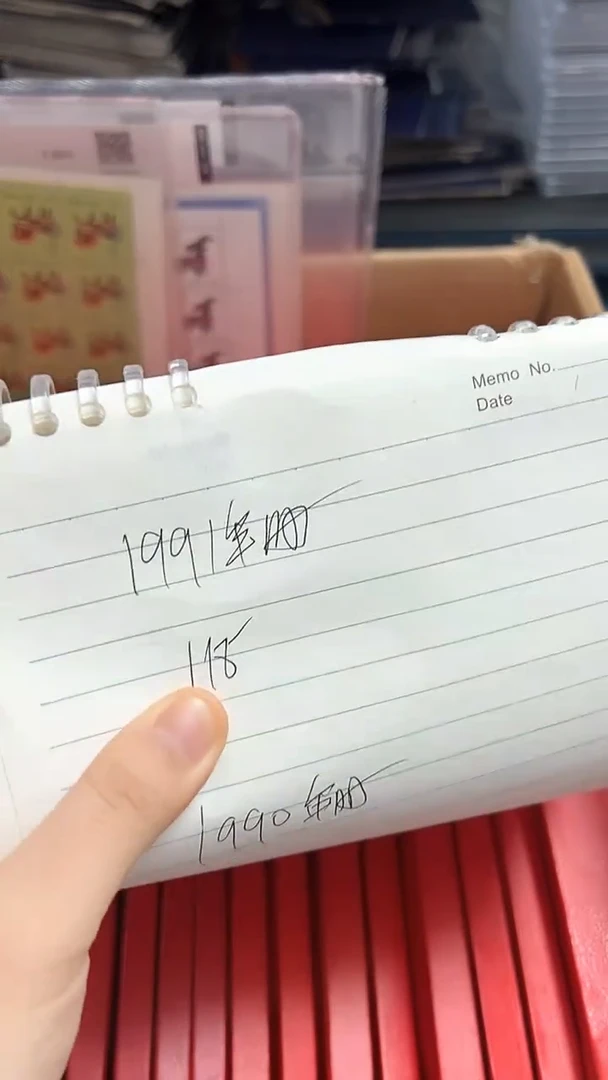 Memo No.
Date /
1991年册
118
1990年册